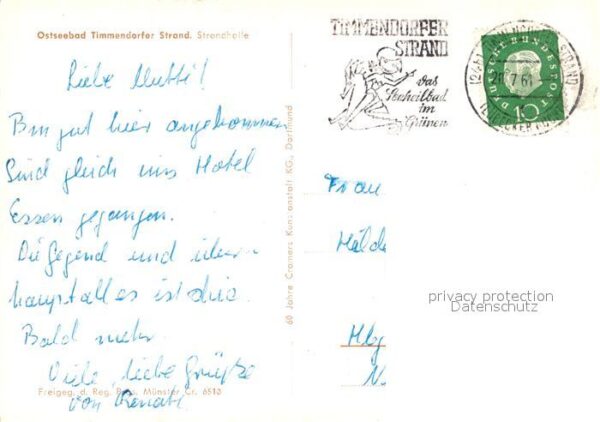 Ostseebad Timmendorfer Strand. Strandhalle
Liebe Mutti!
Bin gut hier angekommen
Sind gleich ins Hotel
Essen gegangen.
Die Gegend und über=
haupt alles ist
Bald mehr.
Viele, liebe Grüße
von Renate
Freigeg. d. Reg. Präs. Münster Cr. 6513
60 Jahre Cramers Kunstanstalt KG., Dortmund
TIMMENDORFER
STRAND
das
Seeheilbad
im
Grünen
TIMMENDORFER STRAND
7.61
DEUTSCHE BUNDESPOST
10
Frau
Hilde
Hbg
N.
privacy protection
Datenschutz